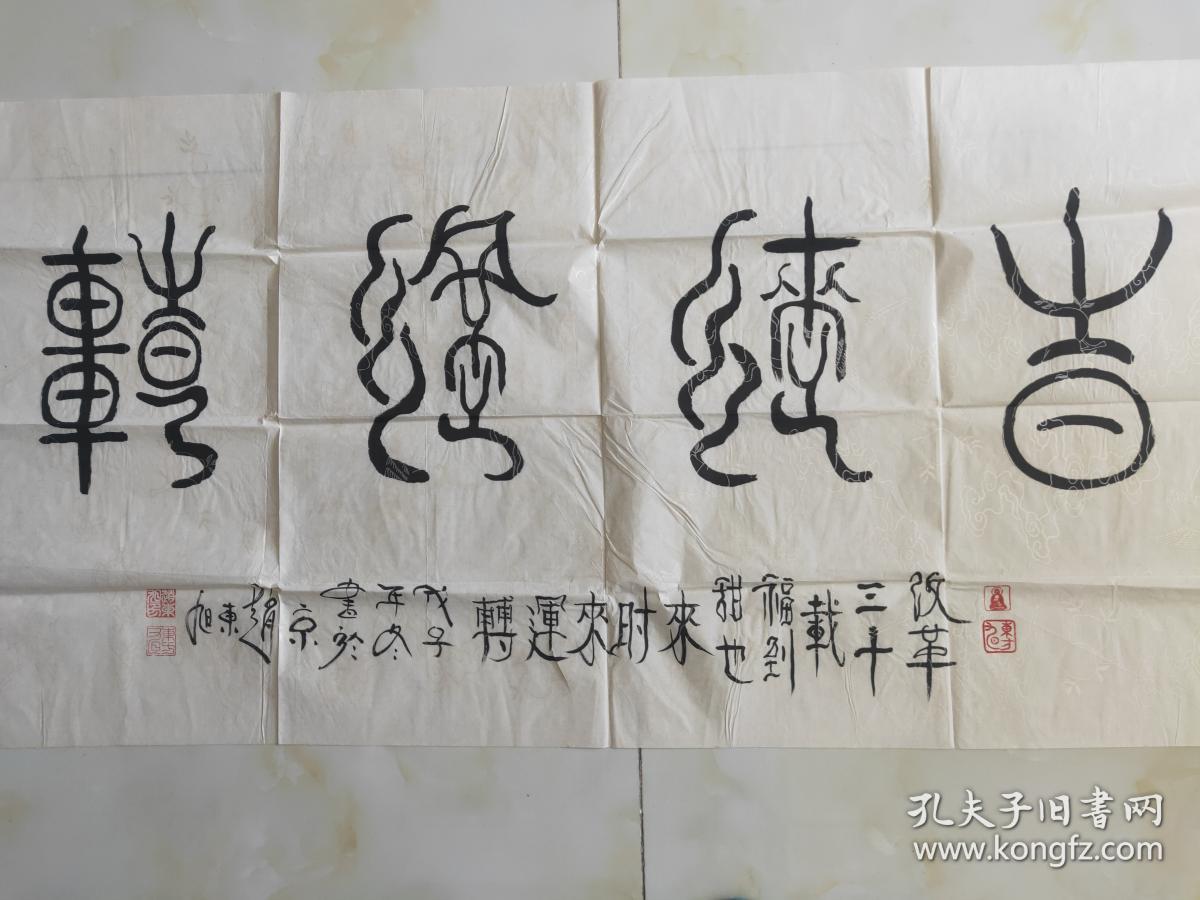 旹逨運轉
改革
三十
載
福到
甜也
來
时
來
運
轉
戊子
年冬
書於
京
趙
東
旭
孔夫子旧书网
www.kongfz.com